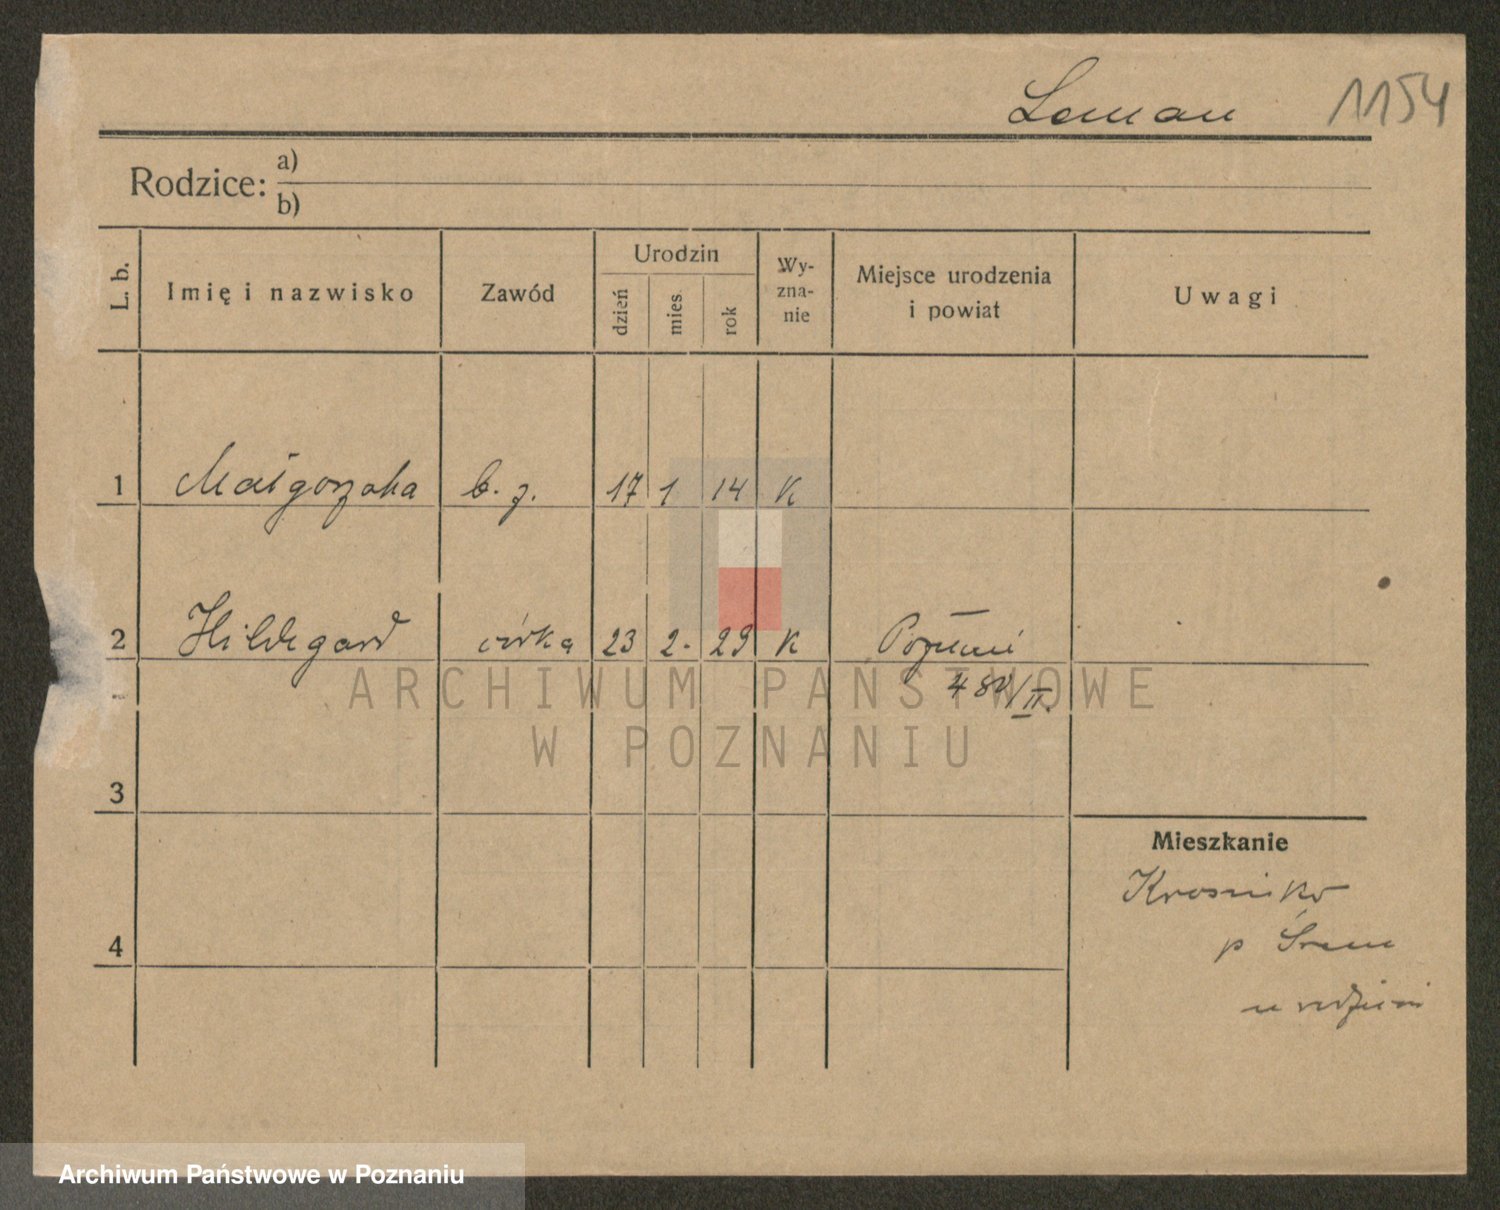 Leman 1154
Rodzice: a)
b)
L. b. Imię i nazwisko Zawód Urodzin dzień mies. rok Wy-zna-nie Miejsce urodzenia i powiat Uwagi
1 Małgorzata b. z. 17 1 14 K
2 Hildegard córka 23 2. 29 K Poznań
480/II.
3
Mieszkanie
Krosinko
4 p Śrem
ARCHIWUM PAŃSTWOWE
W POZNANIU
Archiwum Państwowe w Poznaniu